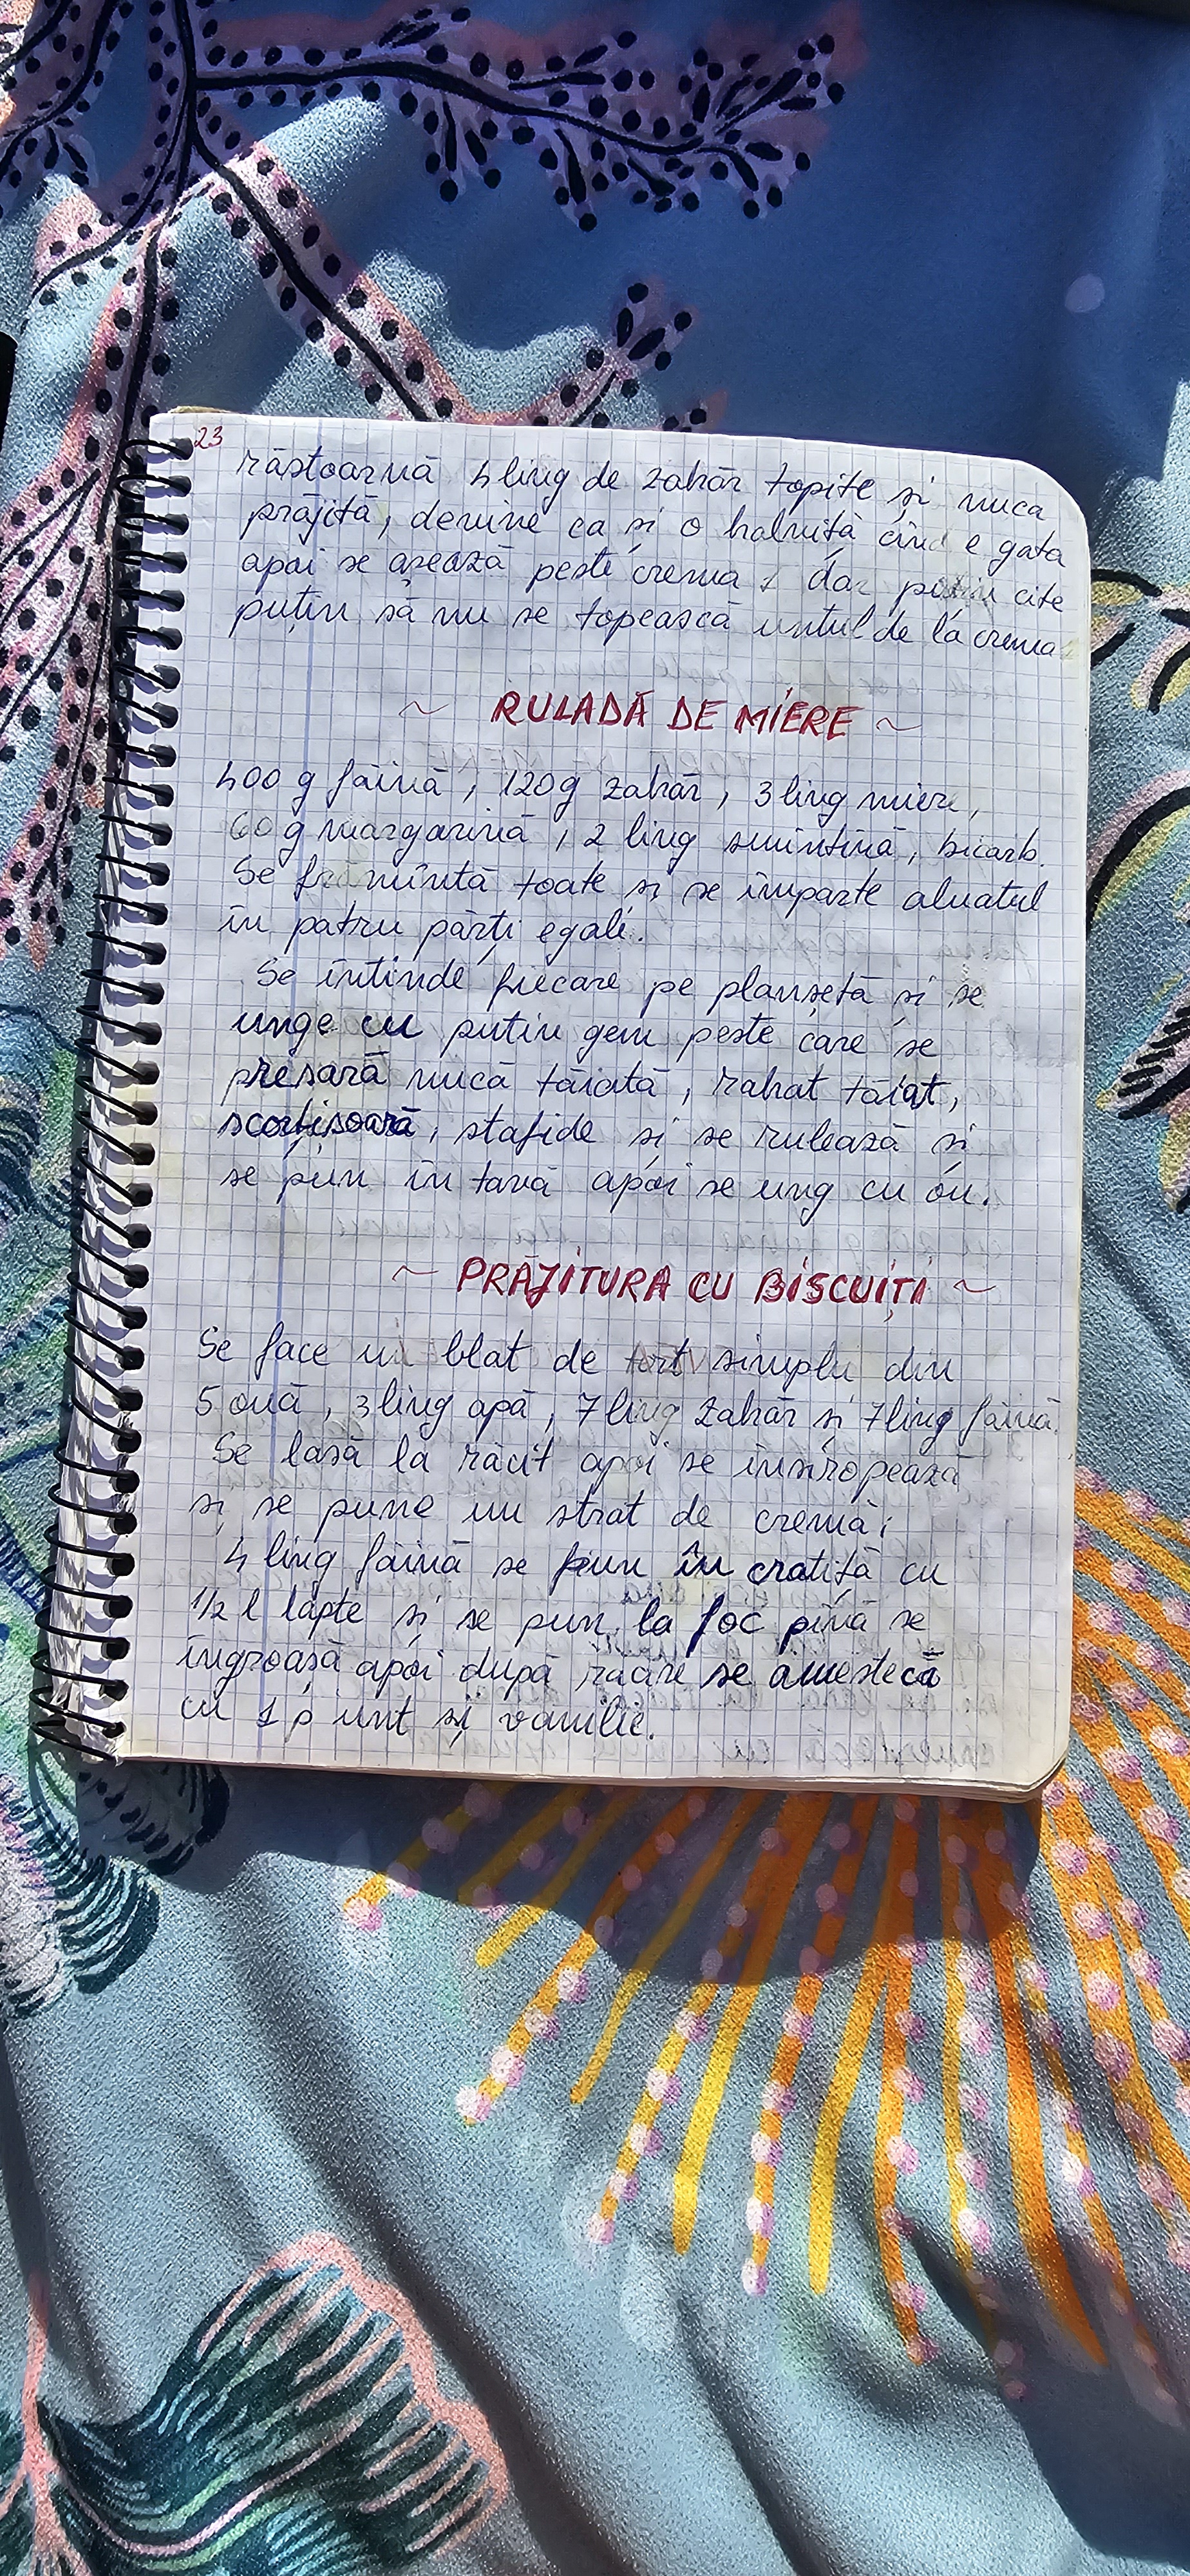 23
răstoarnă 4 ling de zahăr topite și nuca
prăjită, devine ca și o halviță cînd e gata
apoi se așează peste crema 1 dar puțin cîte
puțin să nu se topească untul de la crema
~ RULADĂ DE MIERE ~
400 g făină, 120g zahăr, 3 ling miere,
60 g margarină, 2 ling smîntînă, bicarb.
Se frămîntă toate și se împarte aluatul
în patru părți egale.
Se întinde fiecare pe planșetă și se
unge cu puțin gem peste care se
presară nucă tăiată, rahat tăiat,
scorțisoară, stafide și se rulează și
se pun în tavă apoi se ung cu ou.
~ PRĂJITURA CU BISCUIȚI ~
Se face un blat de tort simplu din
5 ouă, 3 ling apă, 7 ling zahăr și 7 ling făină.
Se lasă la răcit apoi se însiropează
și se pune un strat de cremă:
4 ling făină se pun în cratiță cu
1/2 l lapte și se pun la foc pînă se
îngroașă apoi după răcire se amestecă
cu 1 p unt și vanilie.